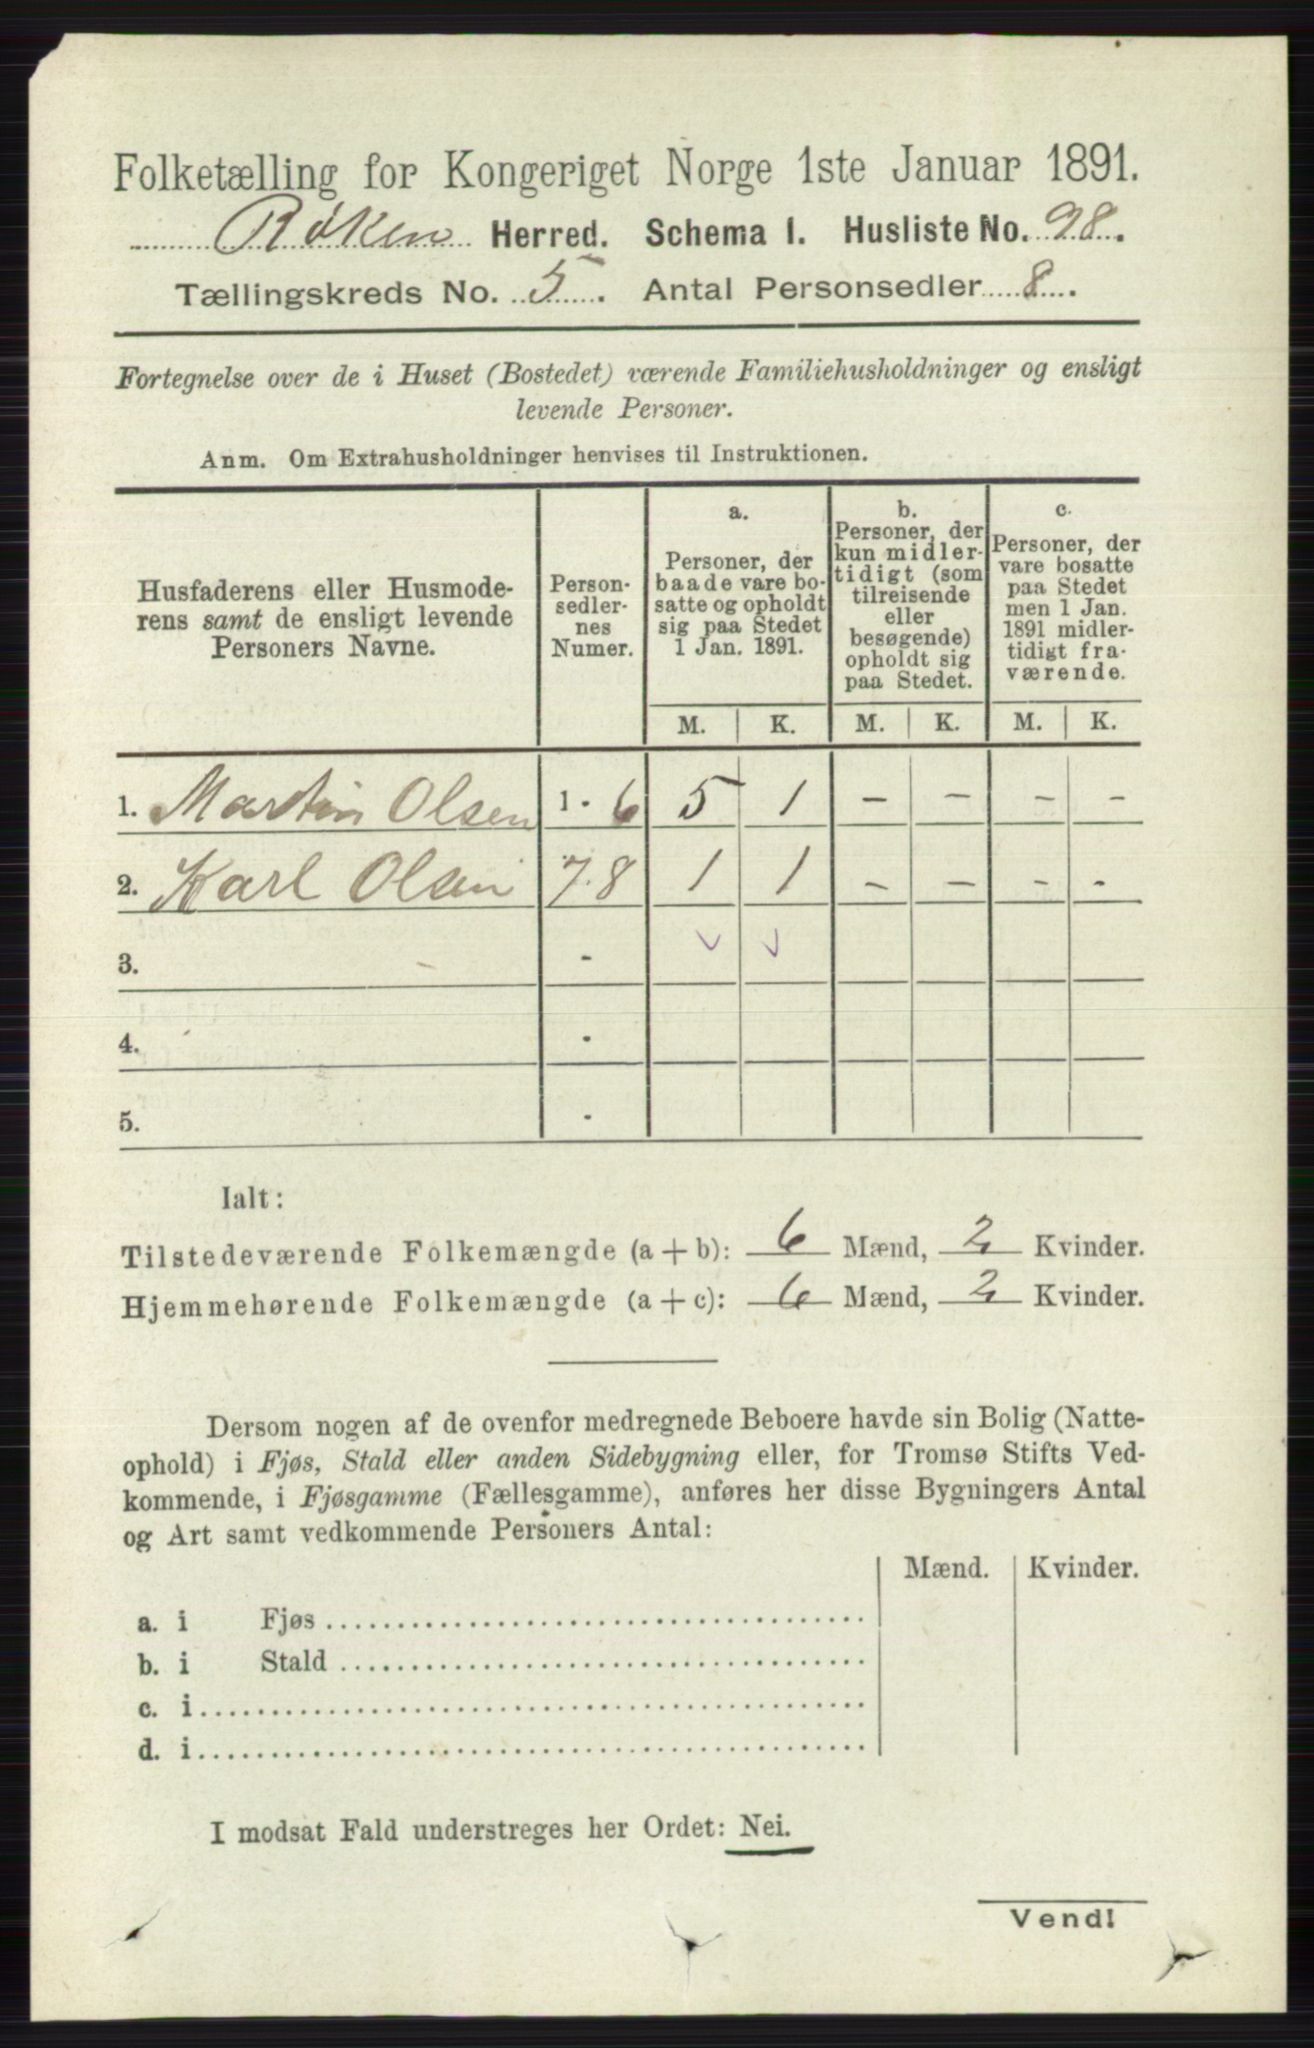 Folketælling for Kongeriget Norge 1ste Januar 1891.
Røken Herred. Schema I. Husliste No. 98.
Tællingskreds No. 5. Antal Personsedler 8.
Fortegnelse over de i Huset (Bostedet) værende Familiehusholdninger og ensligt
levende Personer.
Anm. Om Extrahusholdninger henvises til Instruktionen.
Husfaderens eller Husmode-
rens samt de ensligt levende
Personers Navne.
Person-
sedler-
nes
Numer.
a.
Personer, der
baade vare bo-
satte og opholdt
sig paa Stedet
1 Jan. 1891.
b.
Personer, der
kun midler-
tidigt (som
tilreisende
eller
besøgende)
opholdt sig
paa Stedet.
c.
Personer, der
vare bosatte
paa Stedet
men 1 Jan.
1891 midler-
tidigt fra-
værende.
M. K. M. K. M. K.
1. Martin Olsen 1 - 6 5 1 - - - -
2. Karl Olsen 7-8 1 1 - - - -
3. -
4. -
5. -
Ialt:
Tilstedeværende Folkemængde (a + b): 6 Mænd, 2 Kvinder.
Hjemmehørende Folkemængde (a + c): 6 Mænd, 2 Kvinder.
Dersom nogen af de ovenfor medregnede Beboere havde sin Bolig (Natte-
ophold) i Fjøs, Stald eller anden Sidebygning eller, for Tromsø Stifts Ved-
kommende, i Fjøsgamme (Fællesgamme), anføres her disse Bygningers Antal
og Art samt vedkommende Personers Antal:
Mænd. Kvinder.
a. i Fjøs
b. i Stald
c. i
d. i
I modsat Fald understreges her Ordet: Nei.
Vend!